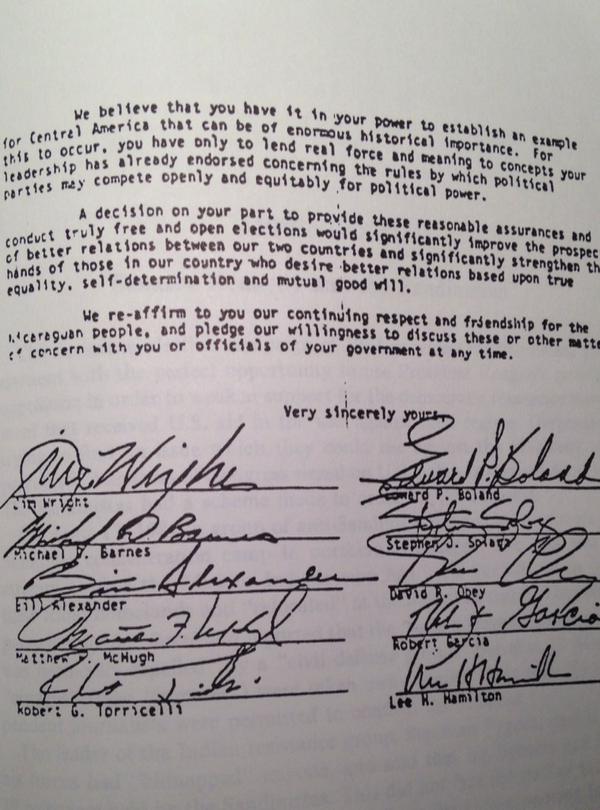 We believe that you have it in your power to establish an example
for Central America that can be of enormous historical importance. For
this to occur, you have only to lend real force and meaning to concepts your
leadership has already endorsed concerning the rules by which political
parties may compete openly and equitably for political power.
A decision on your part to provide these reasonable assurances and
conduct truly free and open elections would significantly improve the prospec
of better relations between our two countries and significantly strengthen th
hands of those in our country who desire better relations based upon true
equality, self-determination and mutual good will.
We re-affirm to you our continuing respect and friendship for the
Nicaraguan people, and pledge our willingness to discuss these or other matte
of concern with you or officials of your government at any time.
Very sincerely yours,
Jim Wright Edward P. Boland
Jim Wright Edward P. Boland
Michael D. Barnes Stephen Solarz
Michael D. Barnes Stephen J. Solarz
Bill Alexander
Bill Alexander David R. Obey
Matthew F. McHugh Robert Garcia
Matthew F. McHugh Robert Garcia
Lee H. Hamilton
Robert G. Torricelli Lee H. Hamilton